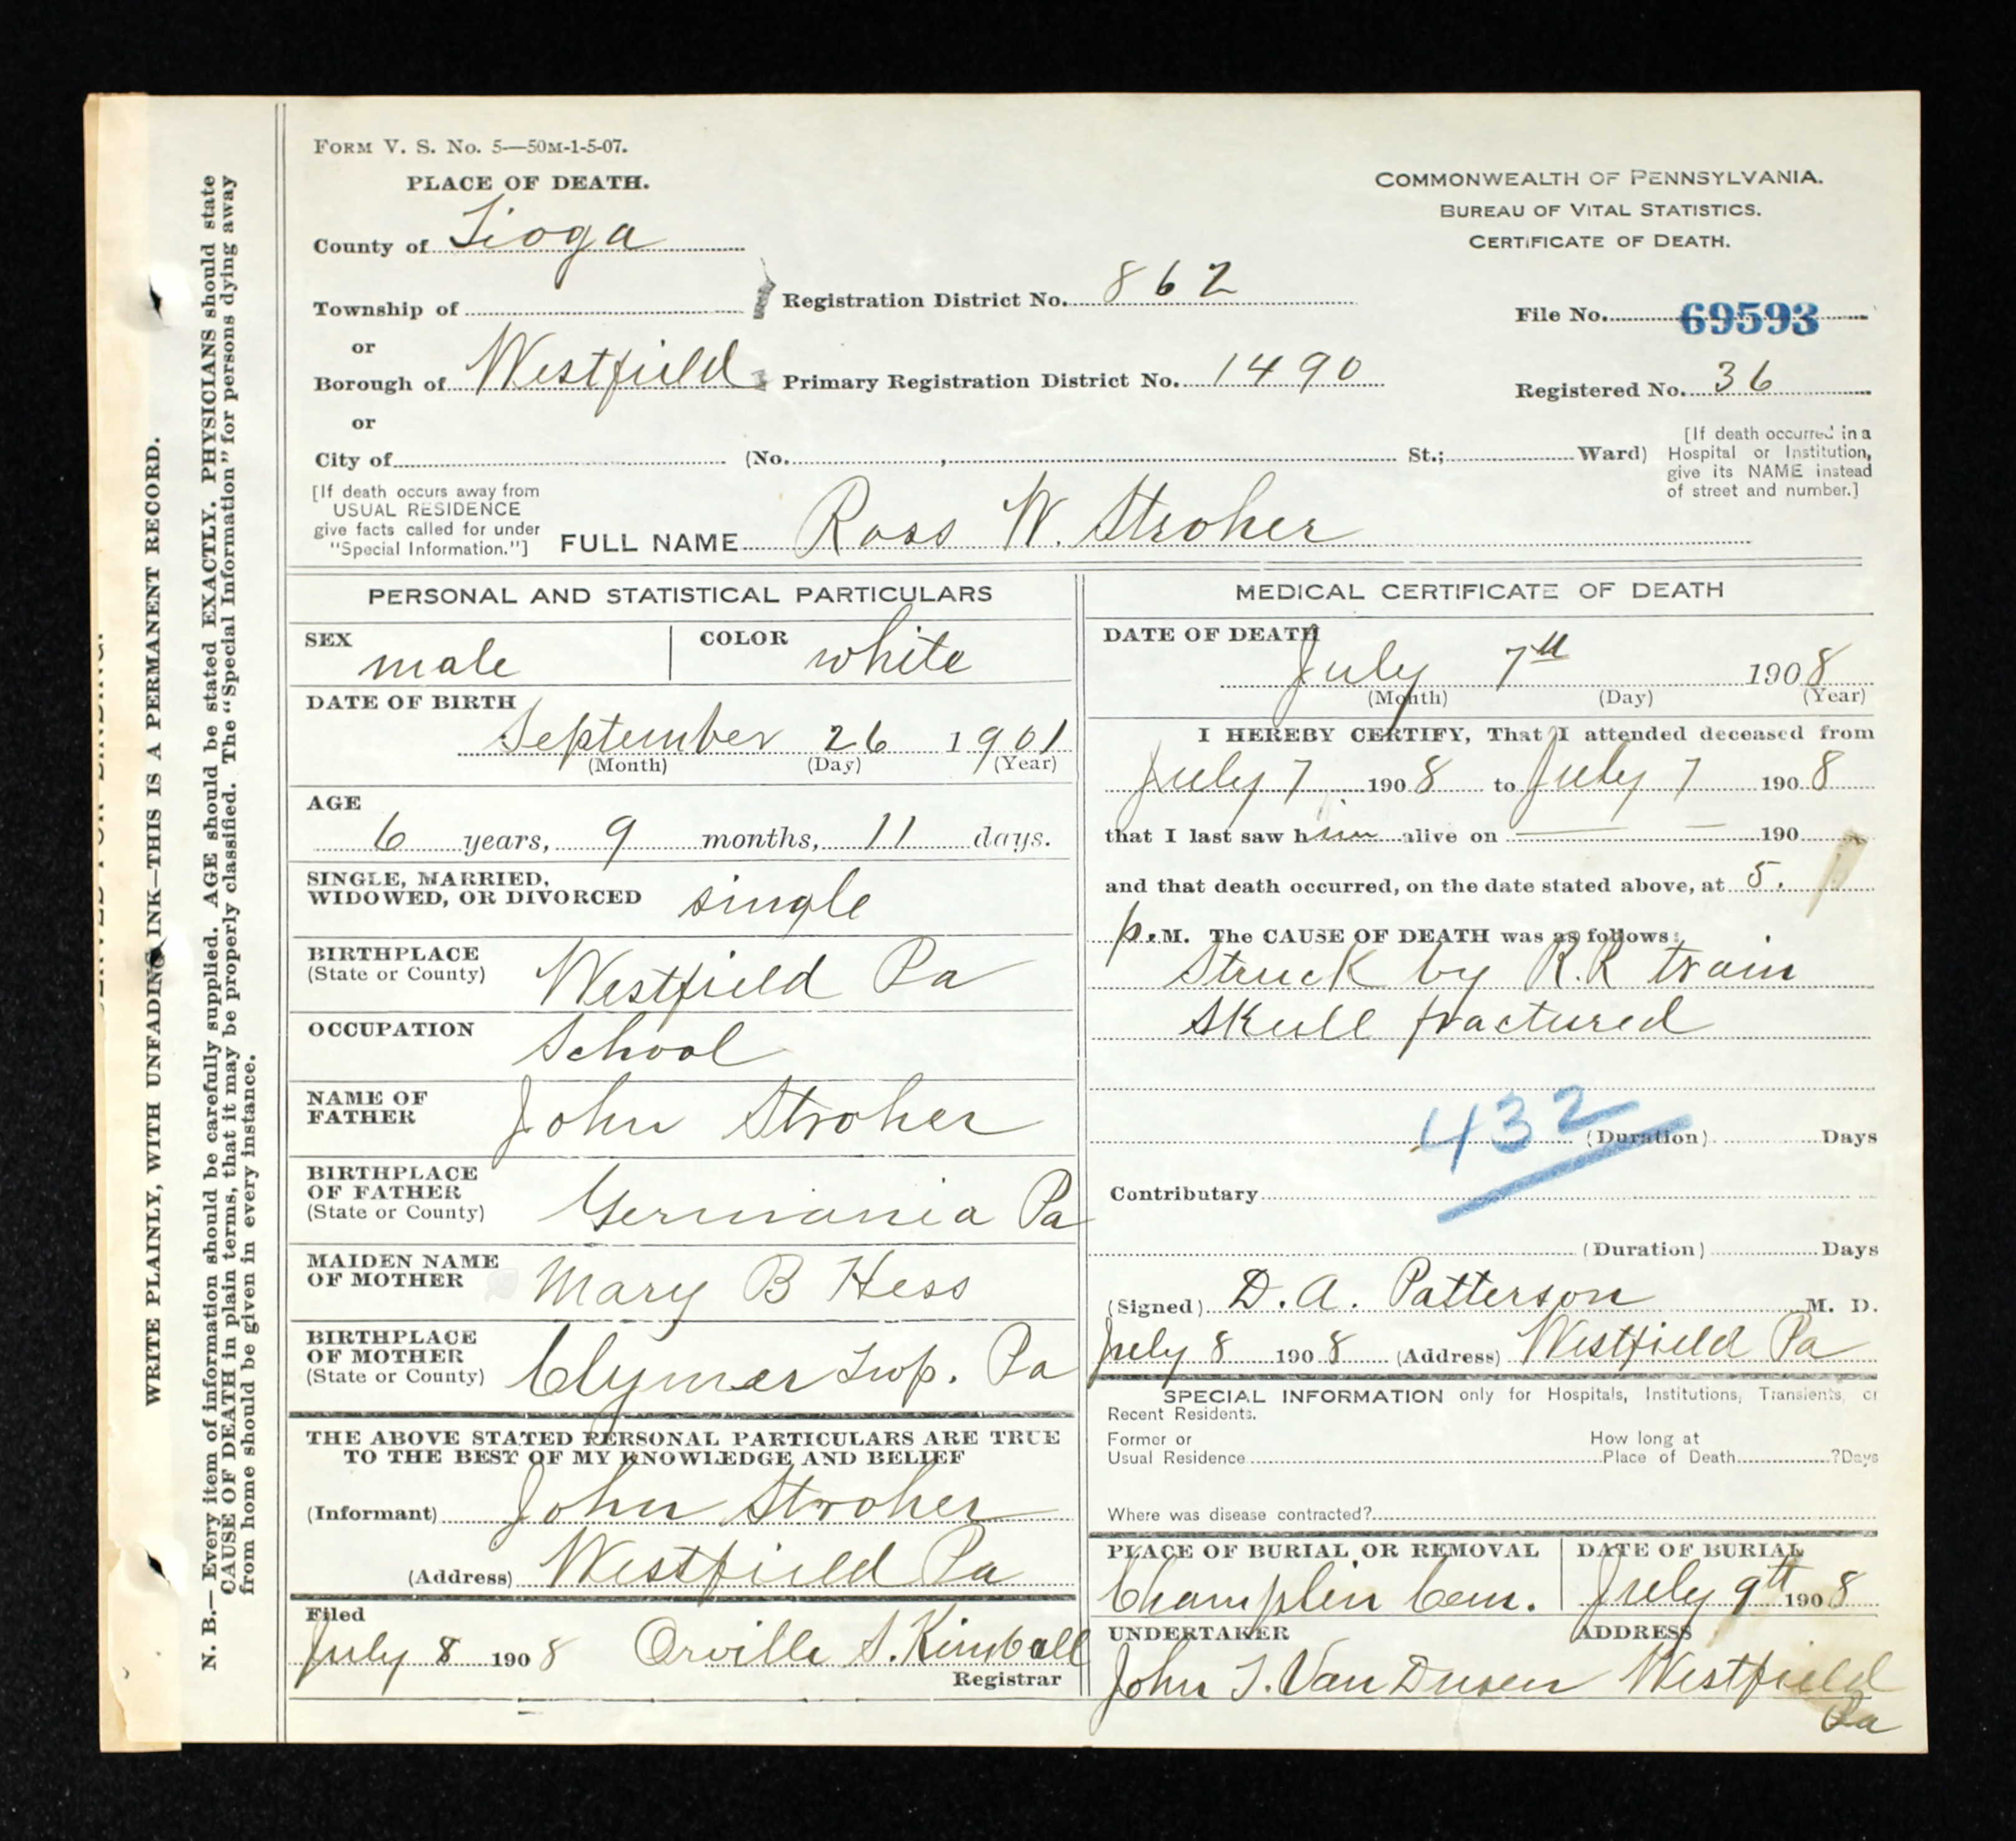 FORM V. S. No. 5—50M-1-5-07.
PLACE OF DEATH.
County of Tioga
Township of
or
Borough of Westfield
or
City of
(No. , St.; Ward)
COMMONWEALTH OF PENNSYLVANIA.
BUREAU OF VITAL STATISTICS.
CERTIFICATE OF DEATH.
Registration District No. 862
Primary Registration District No. 1490
File No. 69593
Registered No. 36
[If death occurred in a
Hospital or Institution,
give its NAME instead
of street and number.]
[If death occurs away from
USUAL RESIDENCE
give facts called for under
"Special Information."]
FULL NAME Ross W. Stroher
PERSONAL AND STATISTICAL PARTICULARS
SEX male
COLOR white
DATE OF BIRTH
September 26 1901
(Month) (Day) (Year)
AGE
6 years, 9 months, 11 days.
SINGLE, MARRIED,
WIDOWED, OR DIVORCED single
BIRTHPLACE
(State or County) Westfield Pa
OCCUPATION
School
NAME OF
FATHER John Stroher
BIRTHPLACE
OF FATHER
(State or County) Germania Pa
MAIDEN NAME
OF MOTHER Mary B Hess
BIRTHPLACE
OF MOTHER
(State or County) Clymer Twp. Pa
THE ABOVE STATED PERSONAL PARTICULARS ARE TRUE
TO THE BEST OF MY KNOWLEDGE AND BELIEF
(Informant) John Stroher
(Address) Westfield Pa
Filed
July 8 1908 Orville S. Kimball
Registrar
MEDICAL CERTIFICATE OF DEATH
DATE OF DEATH
July 7th 1908
(Month) (Day) (Year)
I HEREBY CERTIFY, That I attended deceased from
July 7 1908 to July 7 1908
that I last saw him alive on — — 190
and that death occurred, on the date stated above, at 5.
p.M. The CAUSE OF DEATH was as follows:
Struck by R.R train
Skull fractured
432
(Duration) Days
Contributary
(Duration) Days
(Signed) D. A. Patterson M. D.
July 8 1908 (Address) Westfield Pa
SPECIAL INFORMATION only for Hospitals, Institutions, Transients, or
Recent Residents.
Former or
Usual Residence
How long at
Place of Death ?Days
Where was disease contracted?
PLACE OF BURIAL OR REMOVAL
Champlin Cem.
DATE OF BURIAL
July 9th 1908
UNDERTAKER
John T. Van Dusen
ADDRESS
Westfield
Pa
WRITE PLAINLY, WITH UNFADING INK—THIS IS A PERMANENT RECORD.
N. B.—Every item of information should be carefully supplied. AGE should be stated EXACTLY. PHYSICIANS should state
CAUSE OF DEATH in plain terms, that it may be properly classified. The "Special Information" for persons dying away
from home should be given in every instance.